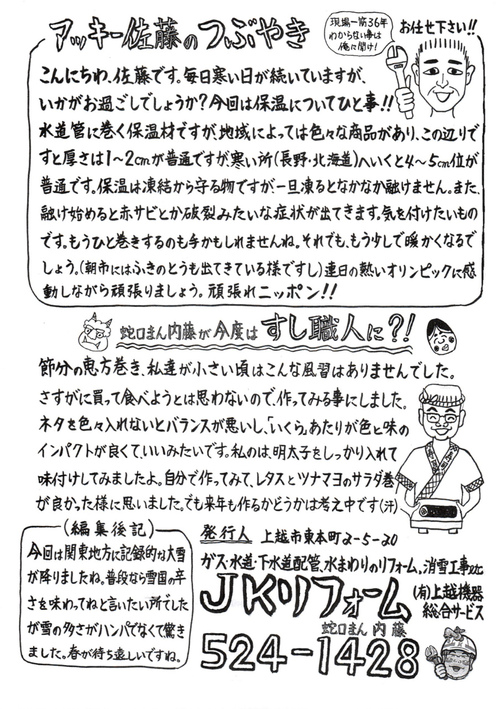 アッキー佐藤のつぶやき
現場一筋36年
わからない事は
俺に聞け!
お任せ下さい!!
こんにちわ、佐藤です。毎日寒い日が続いていますが、
いかがお過ごしでしょうか?今回は保温についてひと事!!
水道管に巻く保温材ですが、地域によっては色々な商品があり、この辺りで
すと厚さは1~2cmが普通ですが寒い所(長野・北海道)へいくと4~5cm位が
普通です。保温は凍結から守る物ですが一旦凍るとなかなか融けません。また、
融け始めると赤サビとか破裂みたいな症状が出てきます。気を付けたいもの
です。もうひと巻きするのも手かもしれませんね。それでも、もう少しで暖かくなるで
しょう。(朝市にはふきのとうも出てきている様ですし)連日の熱いオリンピックに感
動しながら頑張りましょう。頑張れニッポン!!
蛇口まん内藤が今度はすし職人に?!
節分の恵方巻き、私達が小さい頃はこんな風習はありませんでした。
さすがに買って食べようとは思わないので、作ってみる事にしました。
ネタを色々入れないとバランスが悪いし、「いくら」あたりが色と味の
インパクトが良くて、いいみたいです。私のは、明太子をしっかり入れて
味付けしてみましたよ。自分で作ってみて、レタスとツナマヨのサラダ巻
が良かった様に思いました。でも来年も作るかどうかは考え中です(汗)
(編集後記)
今回は関東地方に記録的な大雪
が降りましたね。普段なら雪国の辛
さを味わってねと言いたい所でした
が雪の多さがハンパでなくて驚き
ました。春が待ち遠しいですね。
発行人 上越市東本町2-5-20
ガス・水道・下水道配管、水まわりのリフォーム、消雪工事など
JKリフォーム
(有)上越機器
総合サービス
蛇口まん 内藤
524-1428